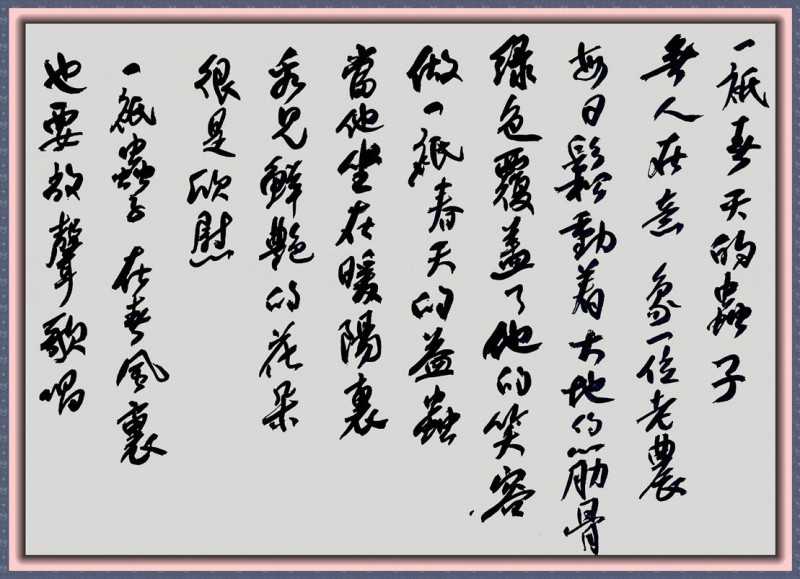 一祇春天的蟲子
無人在意 象一位老農
每日鬆動着大地的筋骨
綠色覆蓋了他的笑容
做一祇春天的益蟲
當他坐在暖陽裏
看見鮮艷的花朵
很是欣慰
一祇蟲子在春風裏
也要放聲歌唱